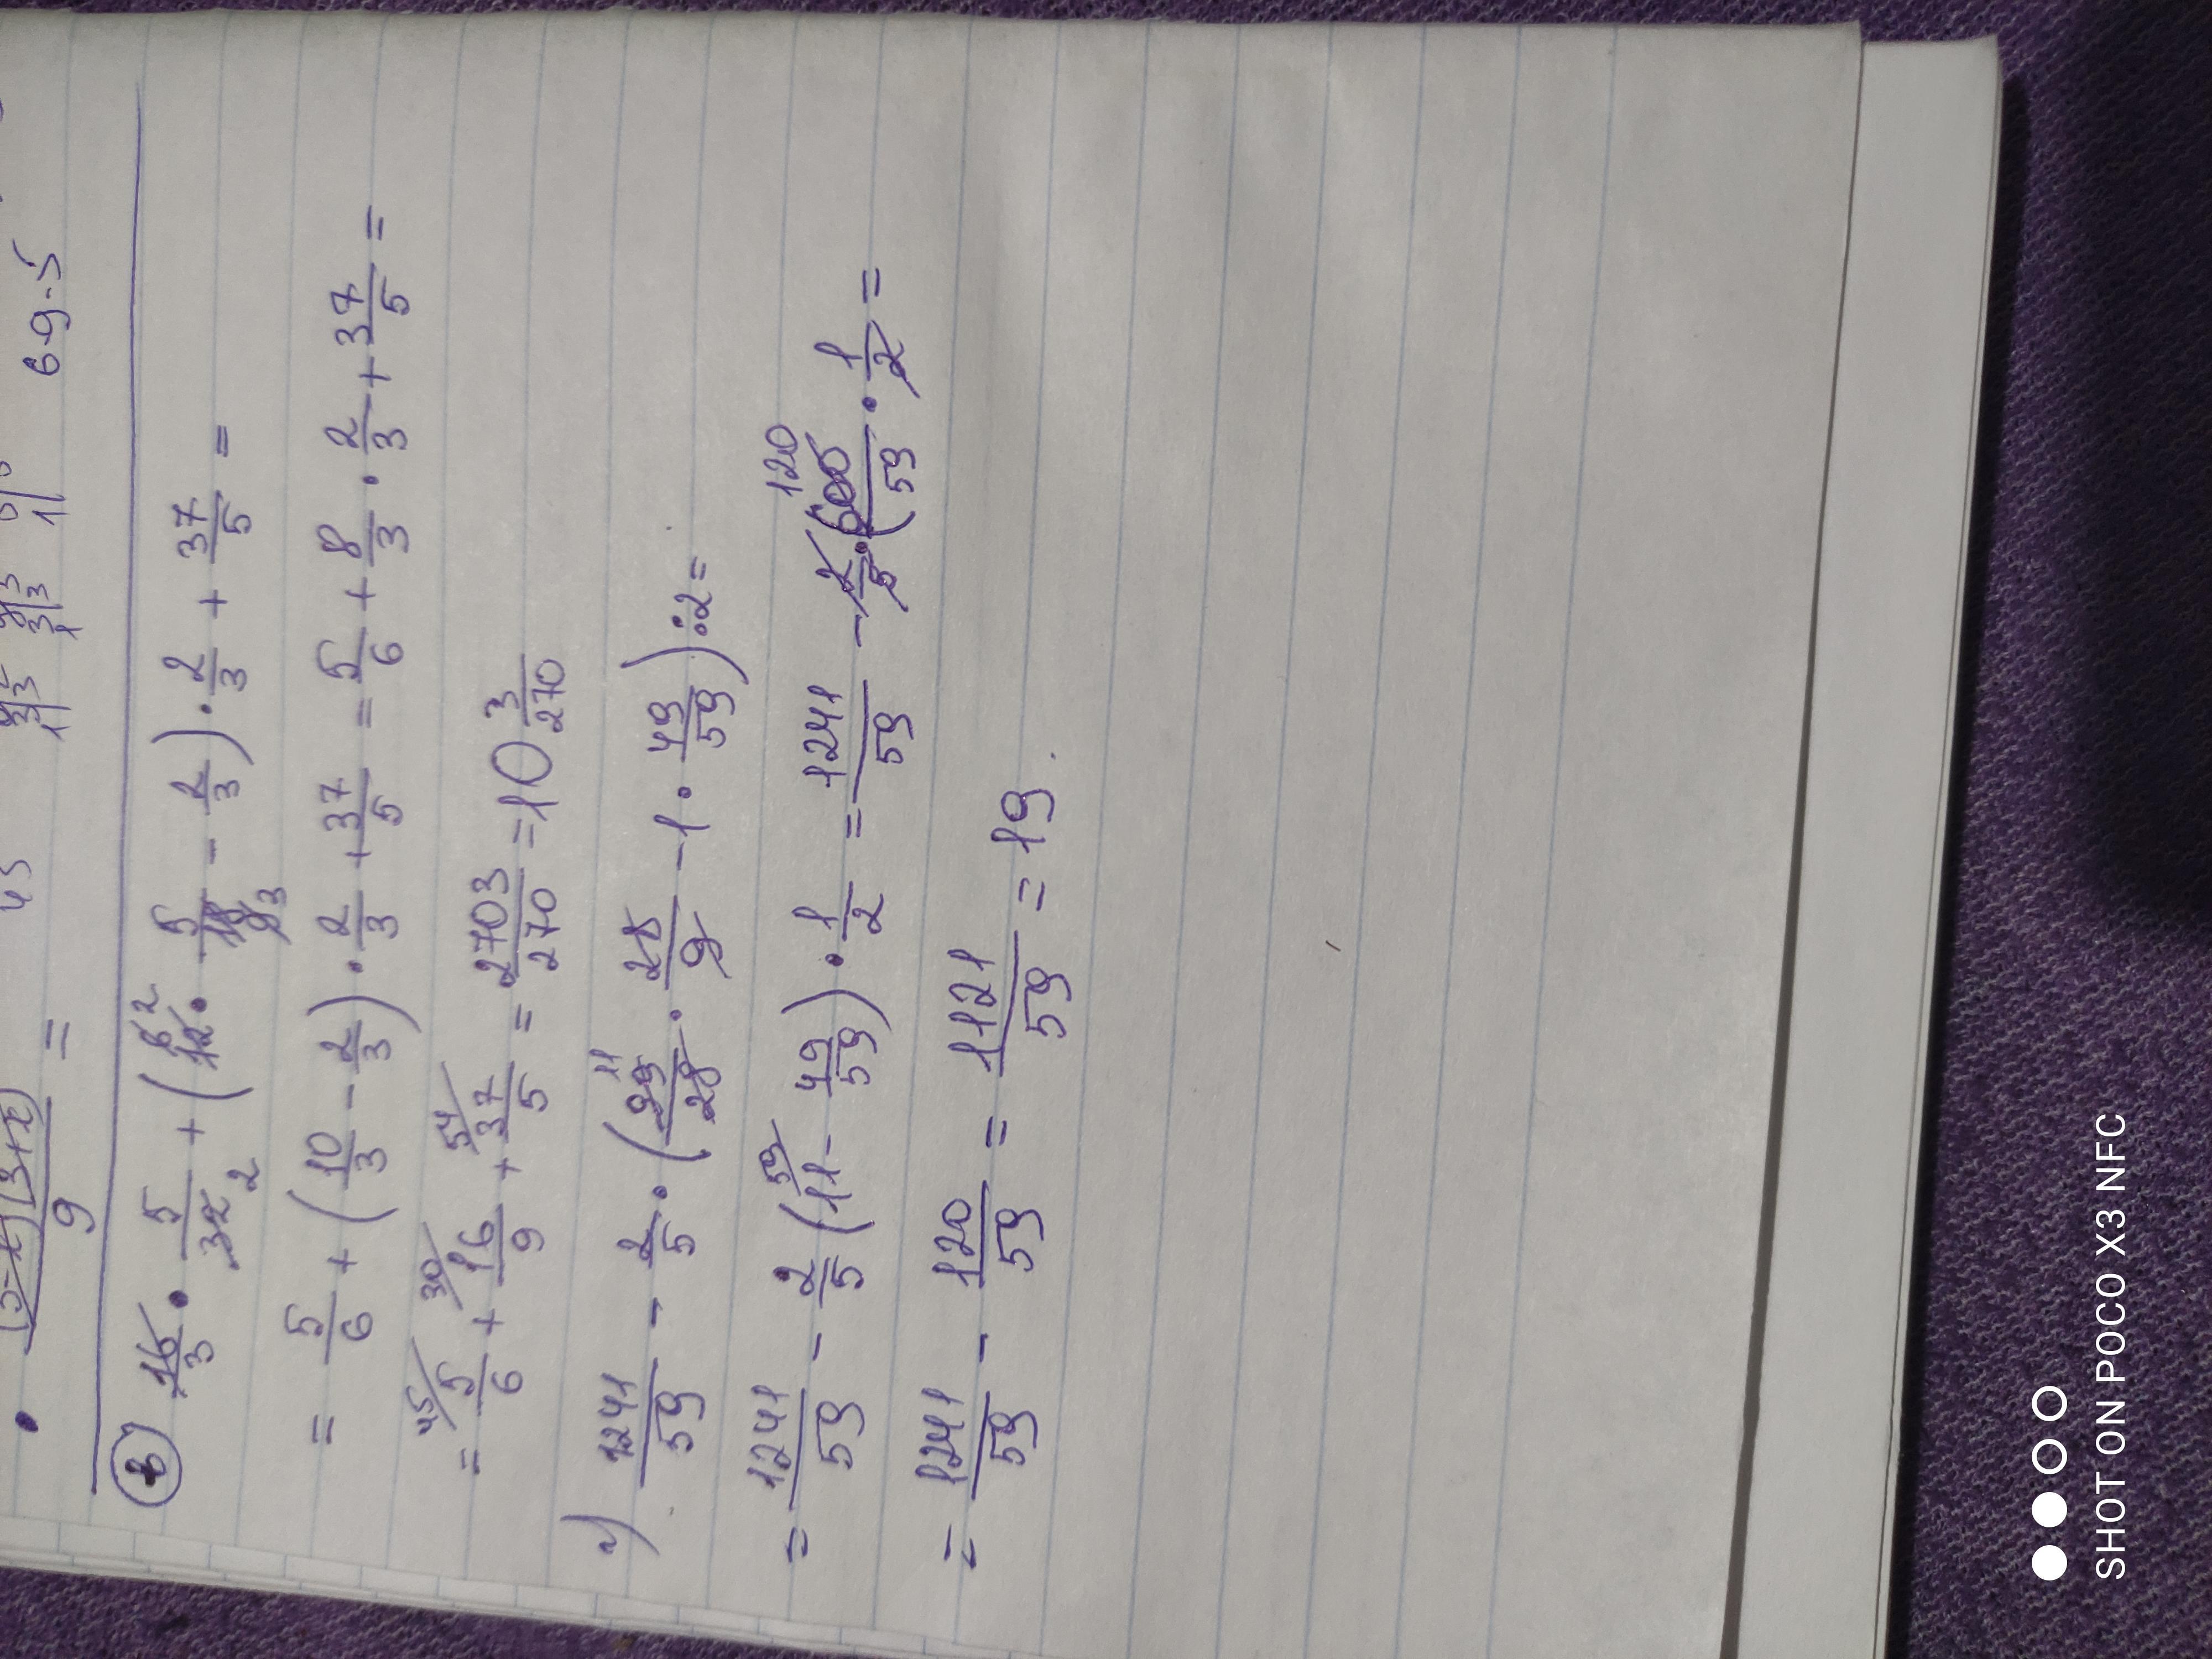 9 =
в) 16/3 · 5/32 + (12 · 5/18 - 2/3) · 2/3 + 37/5 =
= 5/6 + (10/3 - 2/3) · 2/3 + 37/5 = 5/6 + 8/3 · 2/3 + 37/5 =
= 5/6 + 16/9 + 37/5 = 2703/270 = 10 3/270
г) 1241/59 - 2/5 · (99/28 · 28/9 - 1 · 49/59) : 2 =
= 1241/59 - 2/5 (11 - 49/59) · 1/2 = 1241/59 - 2/5 · (600/59 · 1/2 =
= 1241/59 - 120/59 = 1121/59 = 19
SHOT ON POCO X3 NFC